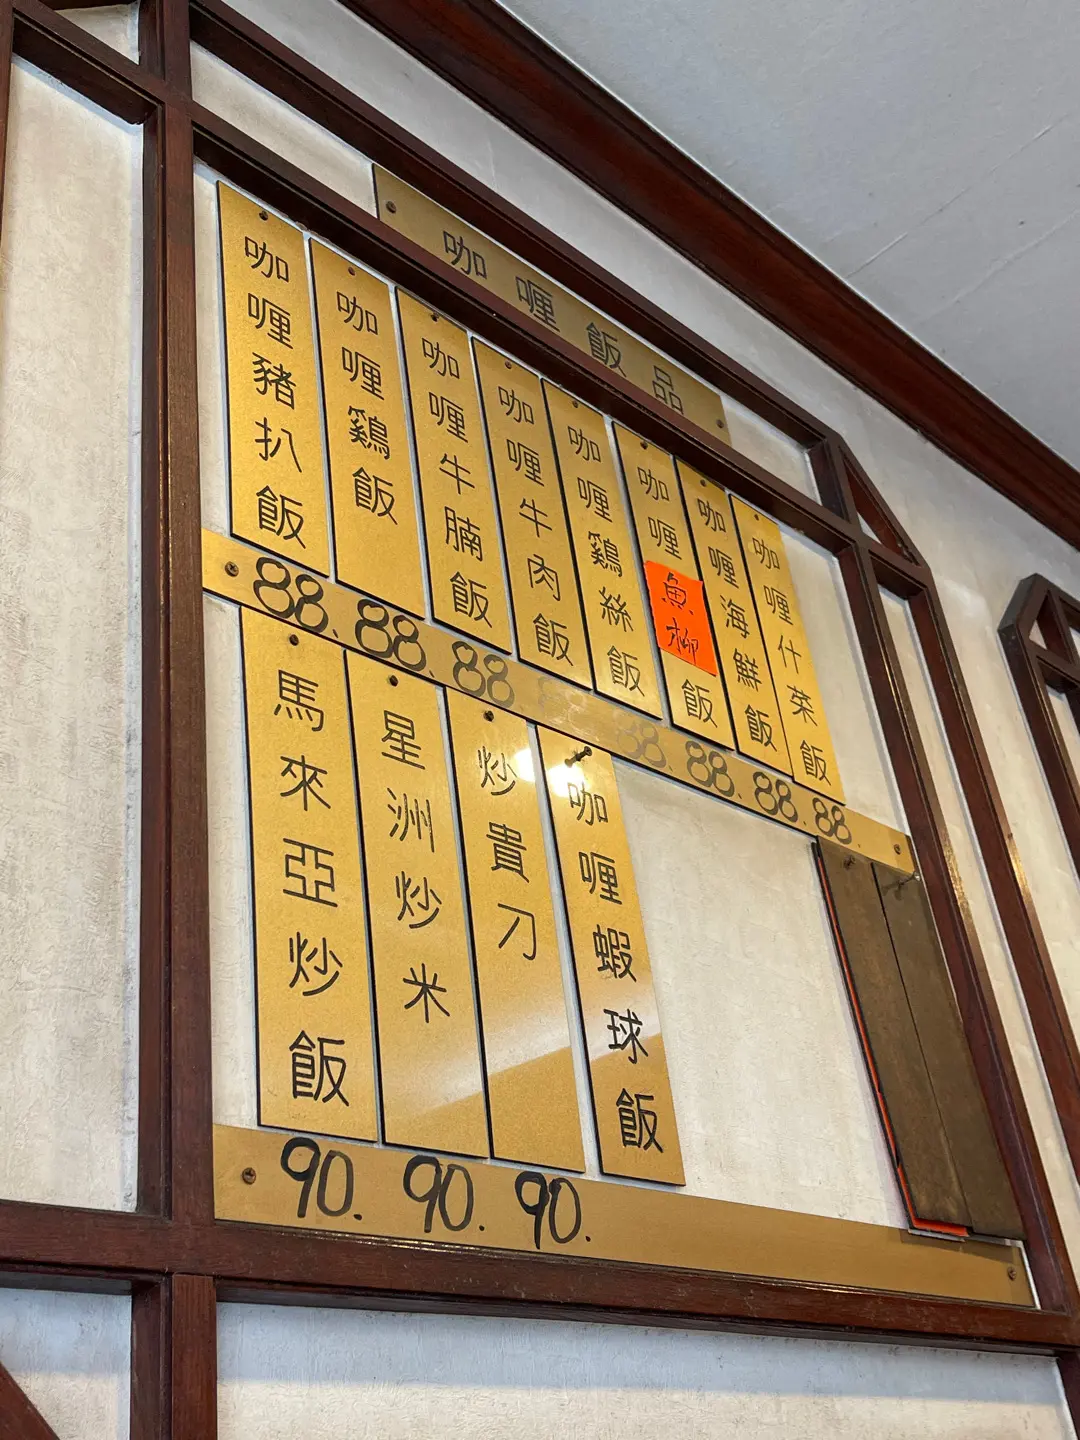 咖喱飯品
咖喱豬扒飯
咖喱鷄飯
咖喱牛腩飯
咖喱牛肉飯
咖喱鷄絲飯
咖喱魚柳飯
咖喱海鮮飯
咖喱什菜飯
88. 88. 88. 88. 88. 88. 88.
馬來亞炒飯
星洲炒米
炒貴刀
咖喱蝦球飯
90. 90. 90.